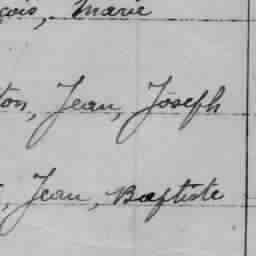 çois, Marie
ton, Jean, Joseph
, Jean, Baptiste